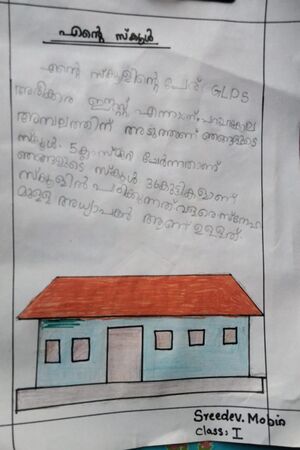 എന്റെ സ്കൂൾ
എന്റെ സ്കൂളിന്റെ പേര് GLPS
അരിക്കര ഈസ്റ്റ് എന്നാണ്.
അമ്പലത്തിന് അടുത്താണ് ഞങ്ങളുടെ
സ്കൂൾ. 5 ക്ലാസ്മുറി ചേർന്നതാണ്
ഞങ്ങളുടെ സ്കൂൾ 36കുട്ടികളാണ്
സ്കൂളിൽ പഠിക്കുന്നത് വളരെ സ്നേഹ
മുള്ള അധ്യാപകർ ആണ് ഉള്ളത്.
Sreedev. Mobin
Class: I